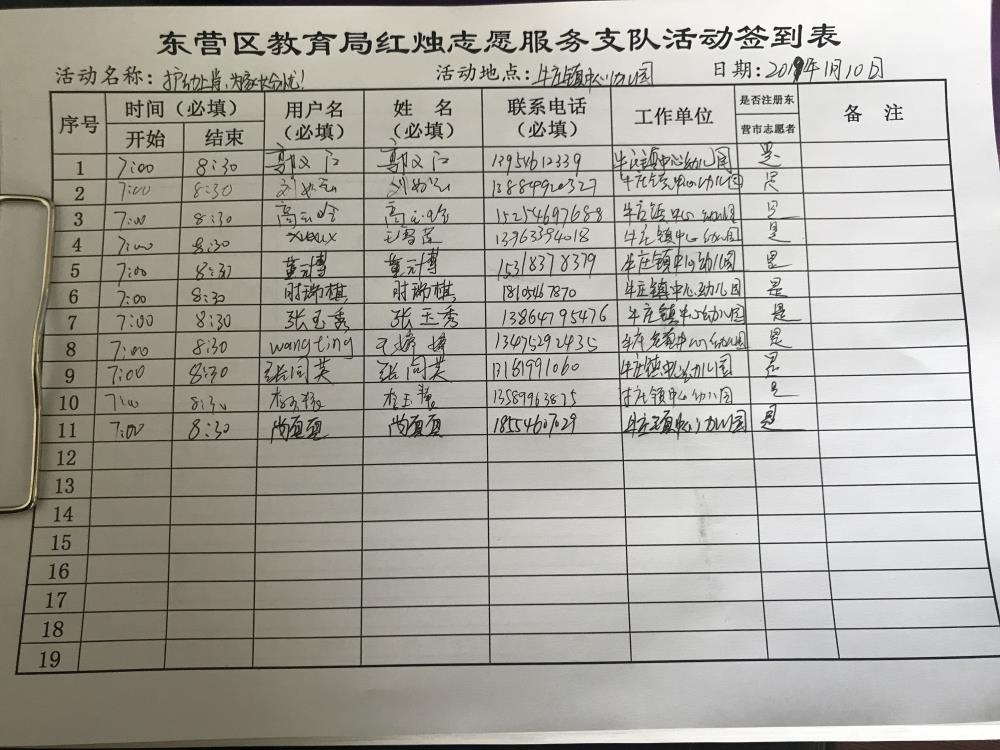 东营区教育局红烛志愿服务支队活动签到表
活动名称：护幼上岗,为家长分忧! 活动地点：牛庄镇中心幼儿园 日期：2019年1月10日
序号 时间（必填） 开始 结束 用户名（必填） 姓名（必填） 联系电话（必填） 工作单位 是否注册东营市志愿者 备注
1 7:00 8:30 13954612339 牛庄镇中心幼儿园 是
2 7:00 8:30 13884920327 牛庄镇中心幼儿园 是
3 7:00 8:30 15254697688 牛庄镇中心幼儿园 是
4 7:00 8:30 13963394018 牛庄镇中心幼儿园 是
5 7:00 8:30 董元博 董元博 15318378379 牛庄镇中心幼儿园 是
6 7:00 8:30 时瑞棋 时瑞棋 18105467870 牛庄镇中心幼儿园 是
7 7:00 8:30 张玉秀 张玉秀 13864795476 牛庄镇中心幼儿园 是
8 7:00 8:30 wangting 王婷婷 13475292435 牛庄镇中心幼儿园 是
9 7:00 8:30 张同英 张同英 13181991060 牛庄镇中心幼儿园 是
10 7:00 8:30 13589963875 牛庄镇中心幼儿园 是
11 7:00 8:30 尚夏夏 尚夏夏 18554607029 牛庄镇中心幼儿园 是
12
13
14
15
16
17
18
19